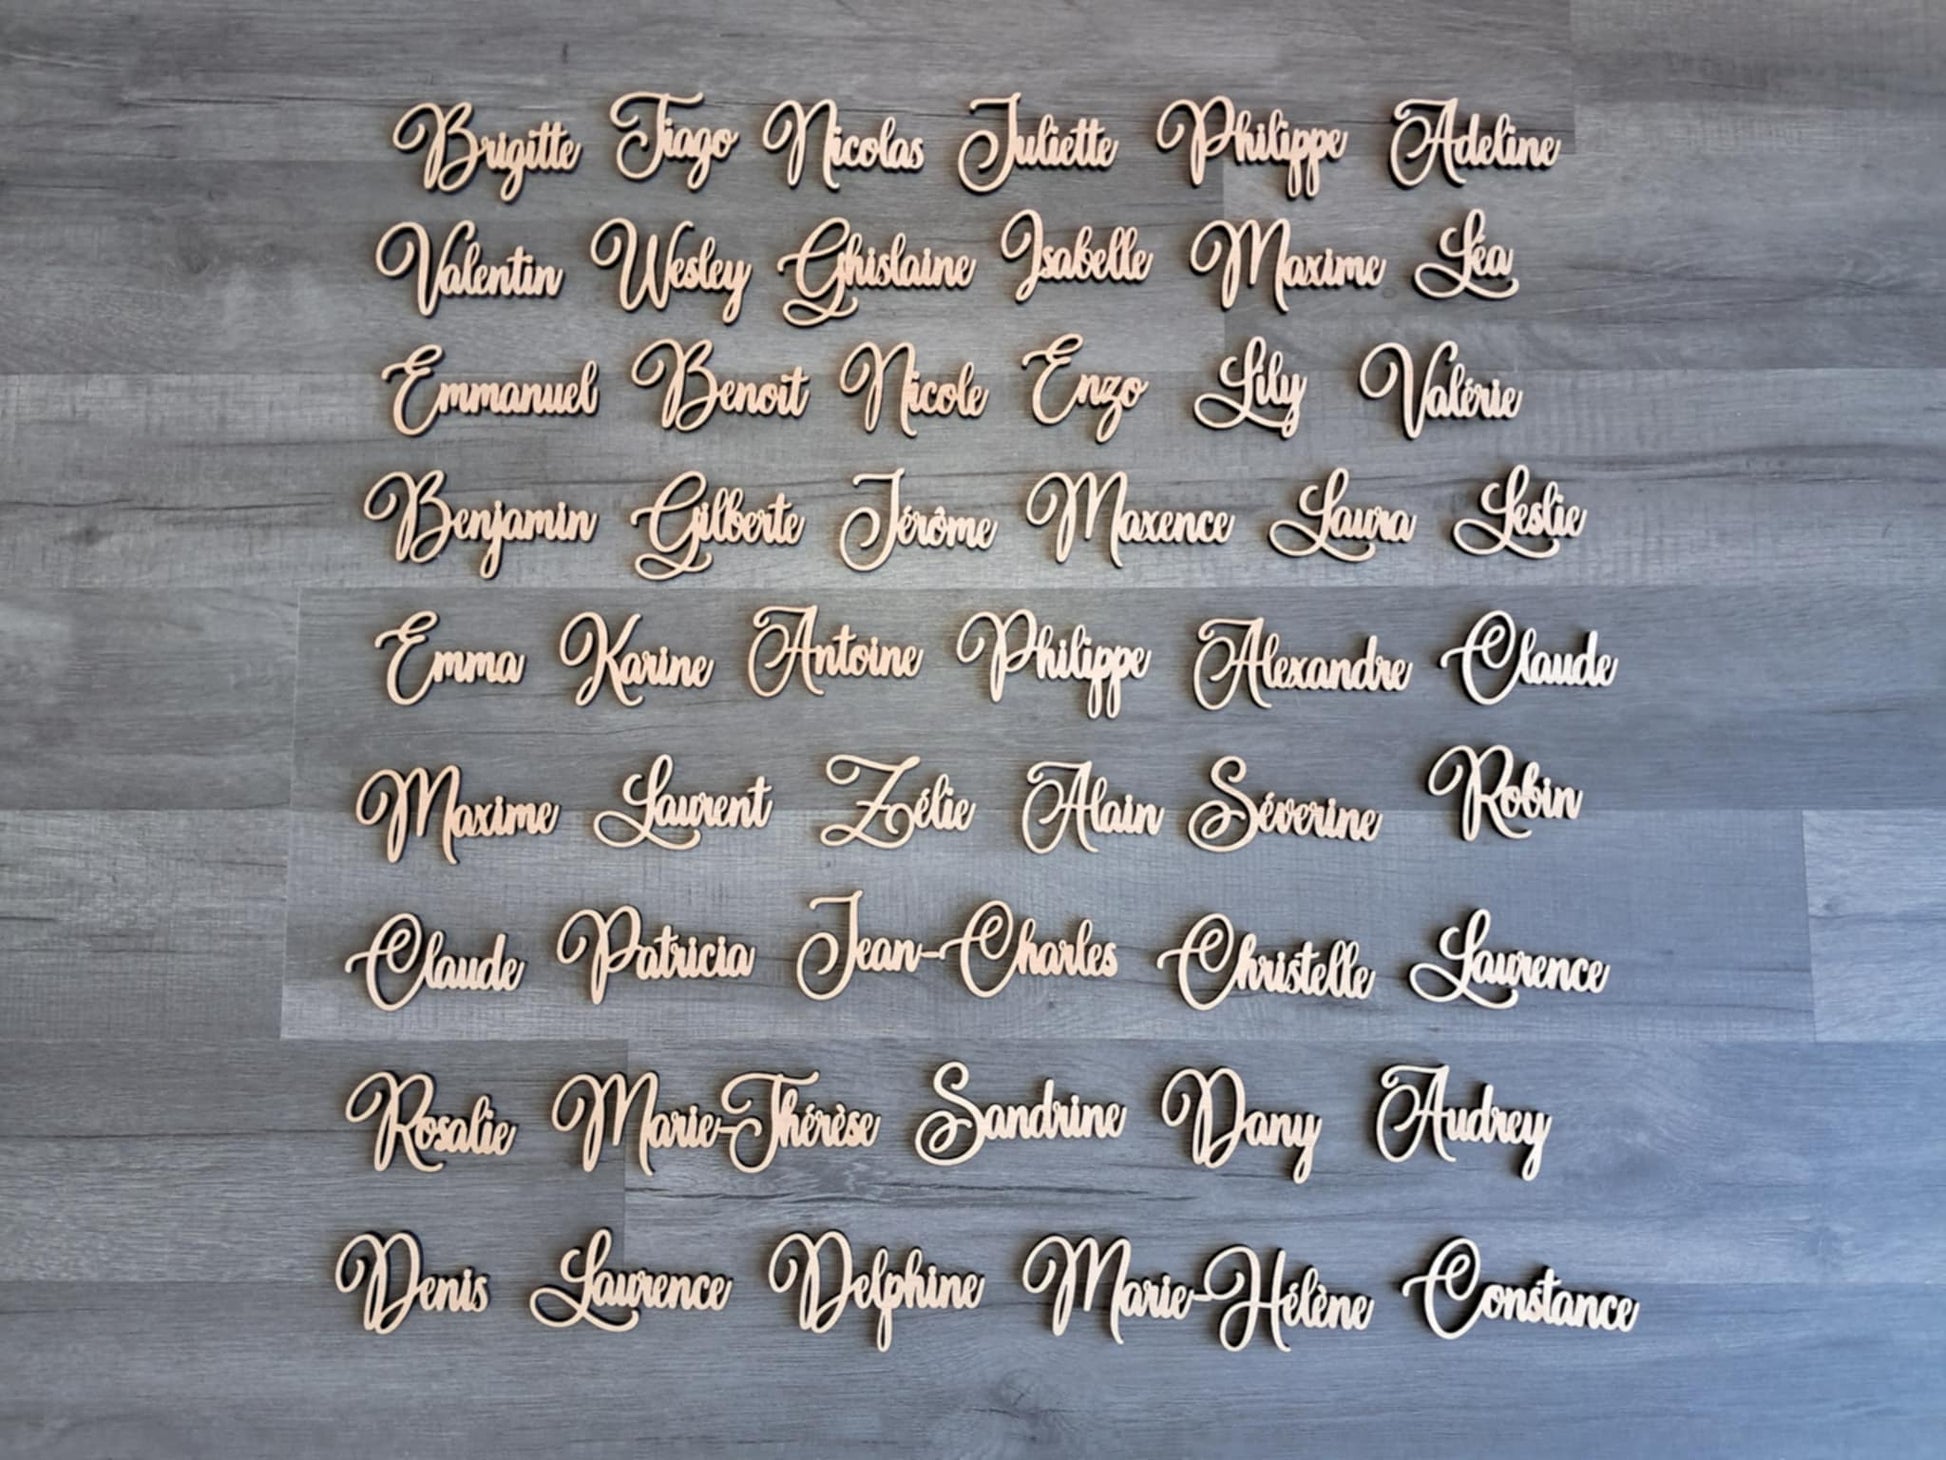 Brigitte Tiago Nicolas Juliette Philippe Adeline
Valentin Wesley Ghislaine Isabelle Maxime Léa
Emmanuel Benoit Nicole Enzo Lily Valérie
Benjamin Gilberte Jérôme Maxence Laura Leslie
Emma Karine Antoine Philippe Alexandre Claude
Maxime Laurent Zélie Alain Séverine Robin
Claude Patricia Jean-Charles Christelle Laurence
Rosalie Marie-Thérèse Sandrine Dany Audrey
Denis Laurence Delphine Marie-Hélène Constance